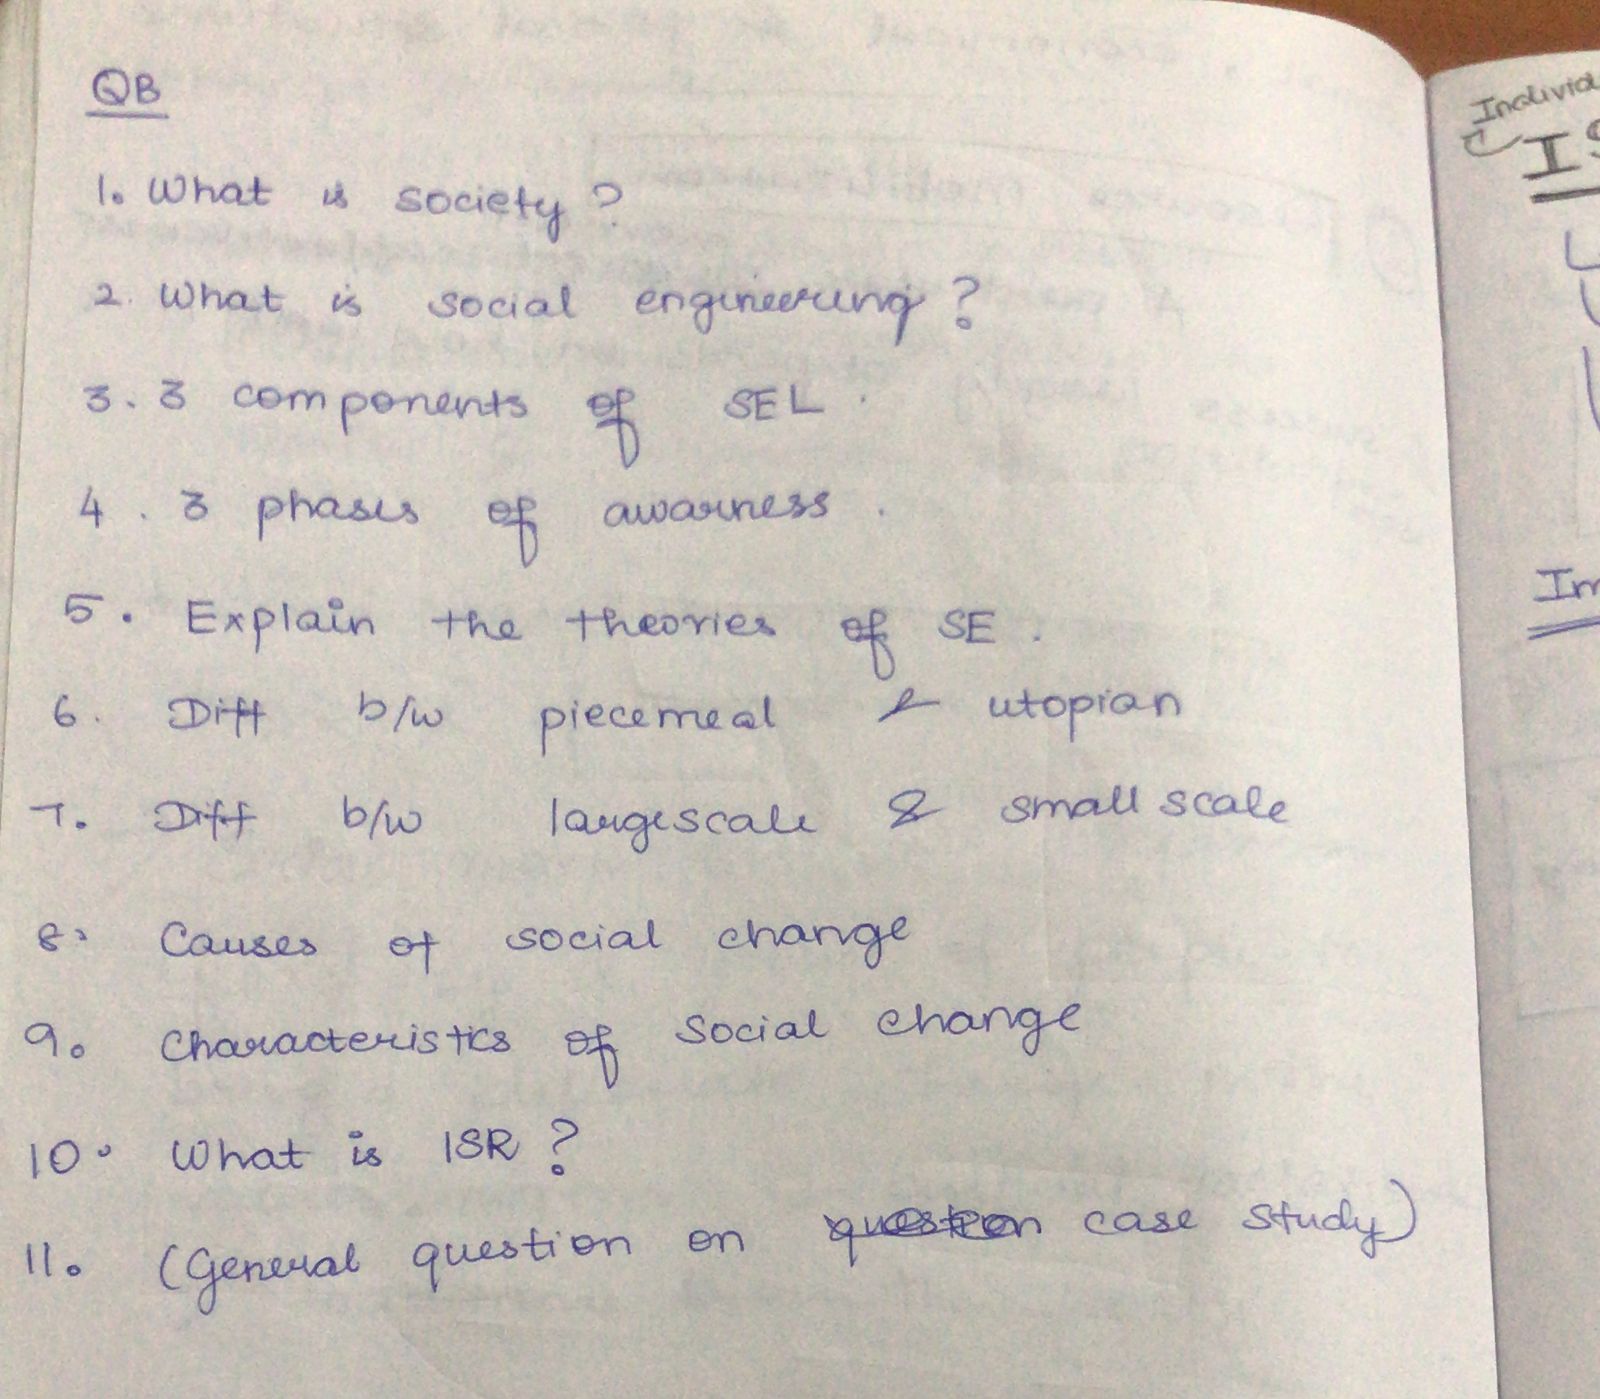 QB
1. What is society?
2. What is social engineering?
3. 3 components of SEL.
4. 3 phases of awarness.
5. Explain the theories of SE.
6. Diff b/w piecemeal & utopian
7. Diff b/w largescale & small scale
8. Causes of social change
9. Characteristics of Social change
10. What is ISR?
11. (General question on case study)